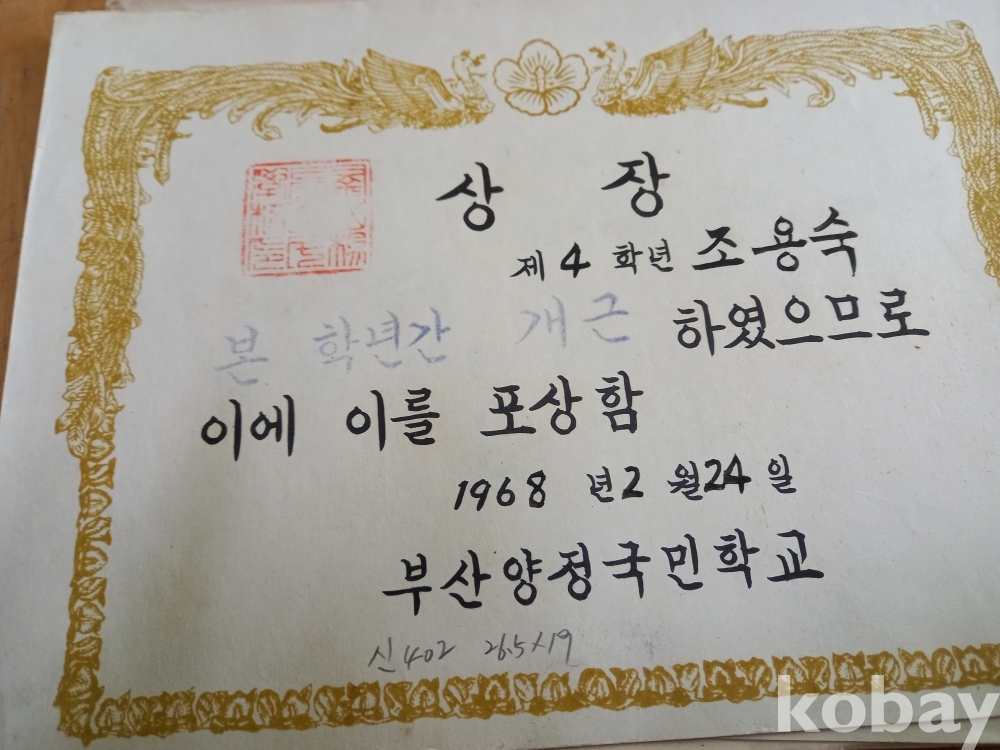 상 장
제 4 학년 조용숙
본 학년간 개근 하였으므로
이에 이를 포상함
1968 년 2 월 24 일
부산양정국민학교
신 402 26.5×19
kobay